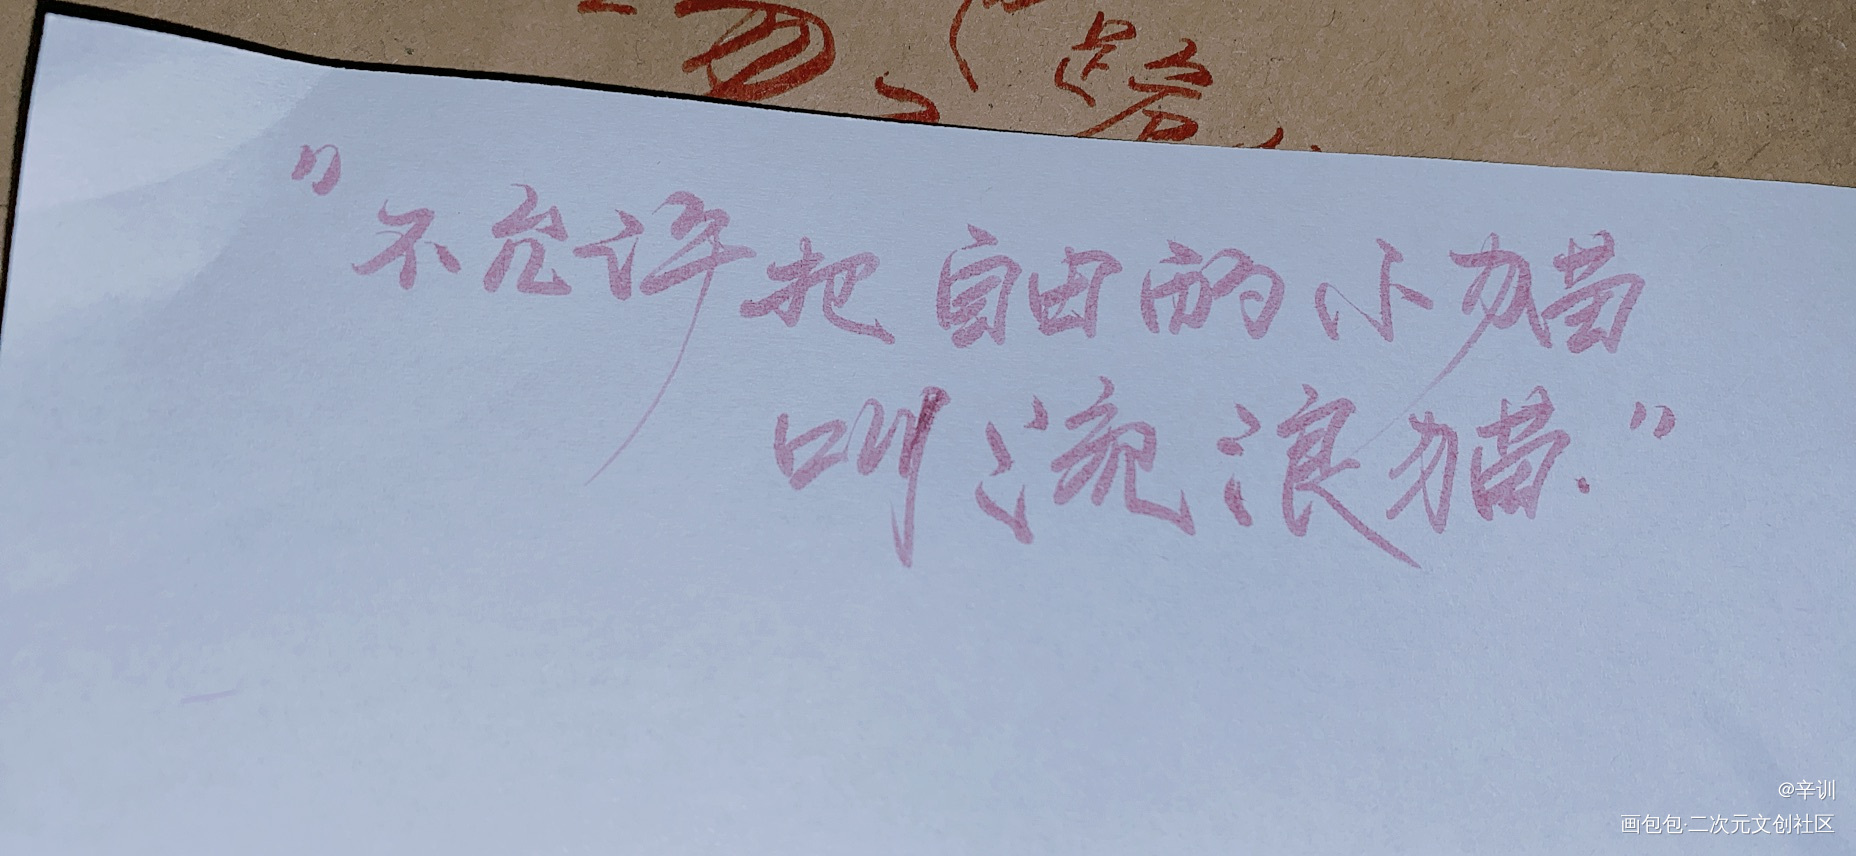 "不允许把自由的小猫
叫流浪猫."
@辛训
画包包·二次元文创社区